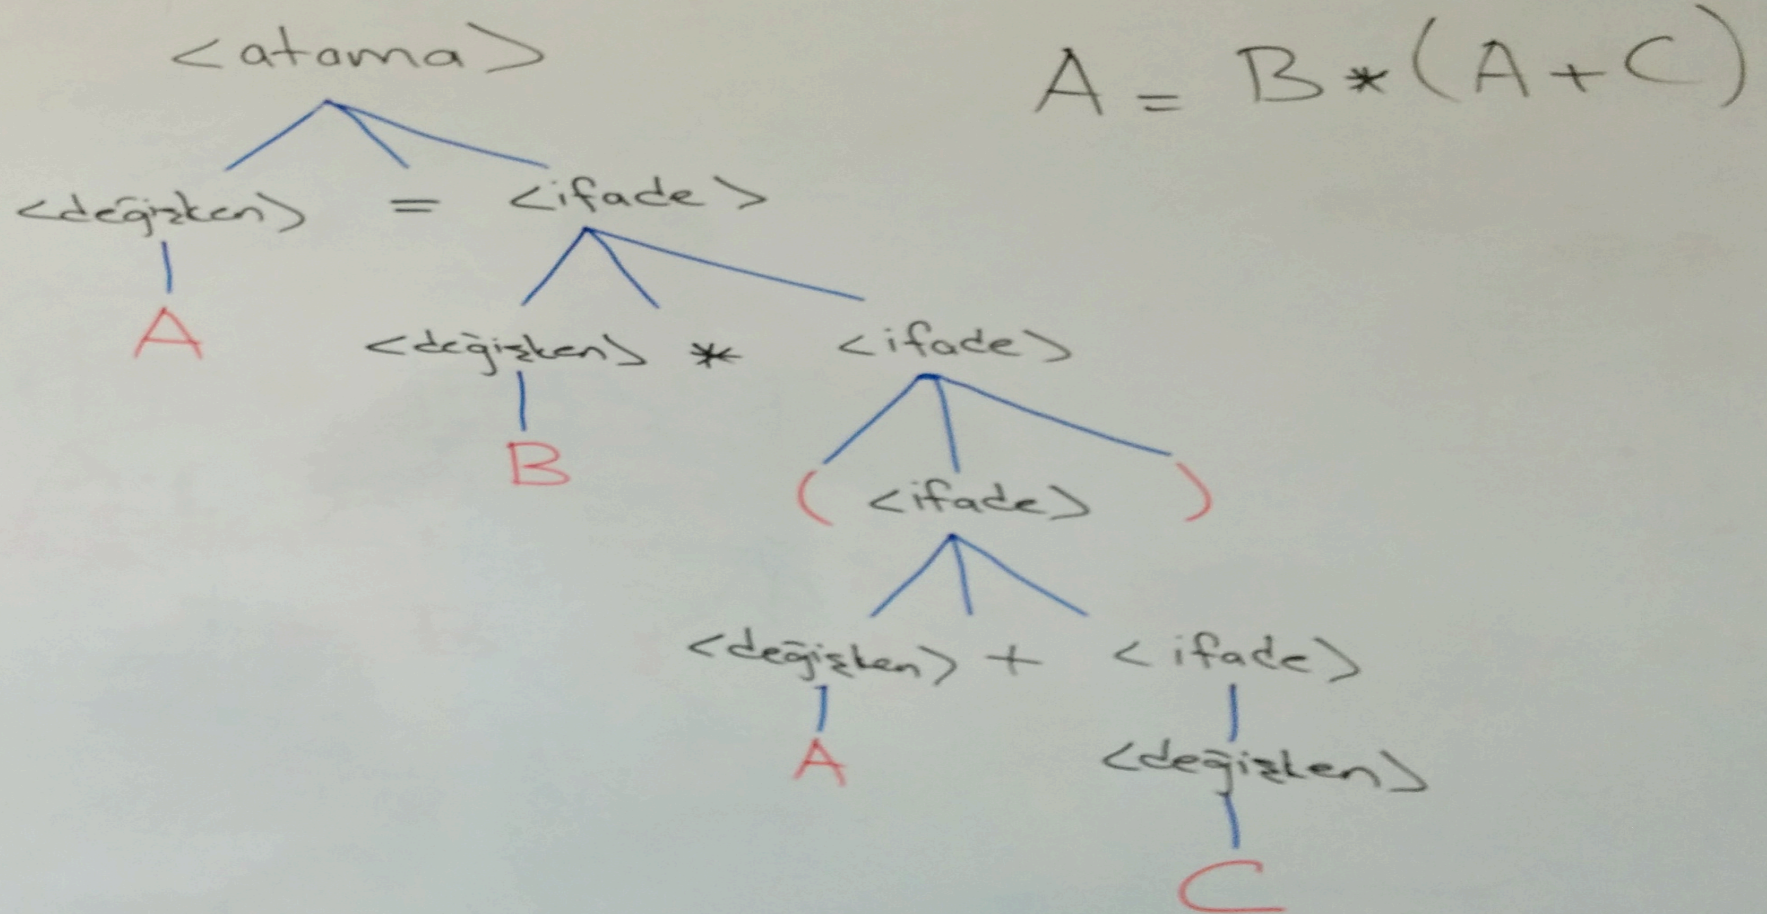 <atama>
A = B * (A + C)
<değişken> = <ifade>
A
<değişken> * <ifade>
B
( <ifade> )
<değişken> + <ifade>
A
<değişken>
C